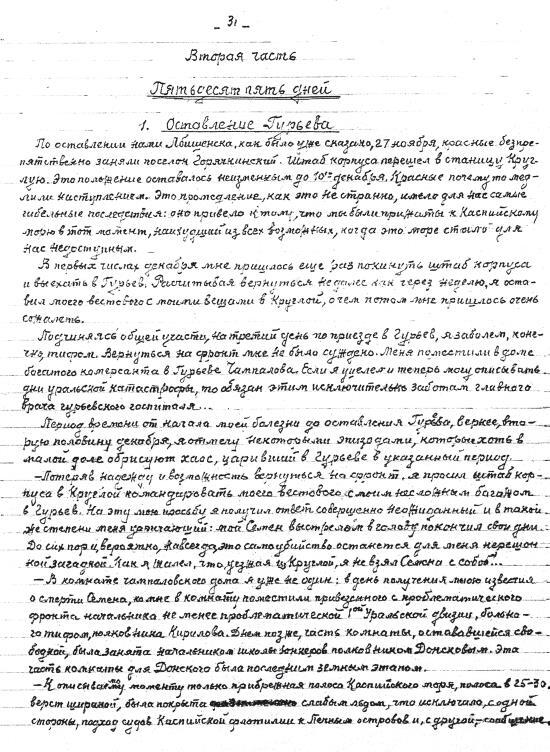 - 31 -
Вторая часть
Пятьдесят пять дней
1. Оставление Гурьева
По оставлении нами Лбищенска, как было уже сказано, 27 ноября, красные безпре-
пятственно заняли поселок Горячкинский. Штаб корпуса перешел в станицу Круг-
лую. Это положение оставалось неизменным до 10го декабря. Красные почему то мед-
лили наступлением. Это промедление, как это не странно, имело для нас самые
гибельные последствия: оно привело к тому, что мы были прижаты к Каспийскому
морю в тот момент, наихудший из всех возможных, когда это море стало для
нас недоступным.
В первых числах декабря мне пришлось еще раз покинуть штаб корпуса
и выехать в Гурьев. Расчитывая вернуться не далее как через неделю, я оста-
вил моего вестового с моими вещами в Круглой, о чем потом мне пришлось очень
сожалеть.
Подчиняясь общей участи, на третий день по приезде в Гурьев, я заболел, конеч-
но, тифом. Вернуться на фронт мне не было суждено. Меня поместили в доме
богатого комерсанта в Гурьеве Чампалова. Если я уцелел и теперь могу описывать
дни уральской катастрофы, то обязан этим исключительно заботам главного
врача гурьевского госпиталя...
Период времени от начала моей болезни до оставления Гурьева, вернее, вто-
рую половину декабря, я отмечу некоторыми эпизодами, которые хоть в
малой доле обрисуют хаос, царивший в Гурьеве в указанный период.
—Потеряв надежду и возможность вернуться на фронт, я просил штаб кор-
пуса в Круглой командировать моего вестового с моим несложным багажом
в Гурьев. На эту мою просьбу я получил ответ совершенно неожиданный и в такой
же степени меня удручающий: мой Семен выстрелом в голову покончил свои дни.
До сих пор и, вероятно, навсегда, это самоубийство останется для меня неразрешен-
ной загадкой. Как я жалел, что, уезжая из Круглой, я не взял Семена с собой...
—В комнате чампаловского дома я уже не один: в день получения мною известия
о смерти Семена, ко мне в комнату поместили привезенного с проблематического
фронта начальника не менее проблематической 1ой Уральской дивизии, больно-
го тифом, полковника Кирилова. Днем позже, часть комнаты, остававшейся сво-
бодной, была занята начальником школы юнкеров полковником Донсковым. Эта
часть комнаты для Донского была последним земным этапом.
—К описываемому моменту только прибрежная полоса Каспийского моря, полоса в 25-30
верст шириной, была покрыта слабым льдом, что исключало, с одной
стороны, подход судов Каспийской флотилии к Пешным островов и, с другой, сообщение